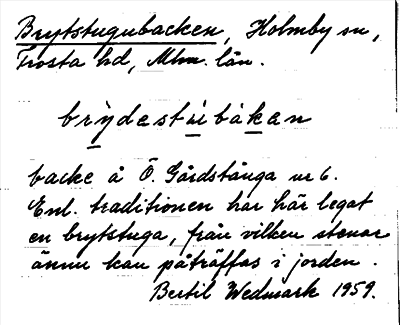 Brytstugubacken, Holmby sn,
Frosta hd, Mlm. län.
brỳdestùbàkan
backe å Ö. Gårdstånga nr 6.
Enl. traditionen har här legat
en brytstuga, från vilken stenar
ännu kan påträffas i jorden.
Bertil Wedmark 1959.